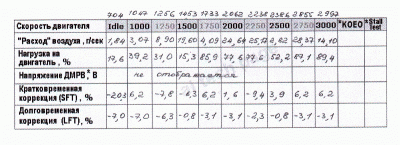 704 1047 1256 1453 1733 2062 2238 2386 2855 2992
Скорость двигателя Idle 1000 1250 1500 1750 2000 2250 2500 2750 3000 *KOEO *Stall Test
"Расход" воздуха, г/сек 1,84 3,07 8,90 19,60 4,09 24,64 25,17 22,62 28,37 14,10
Нагрузка на двигатель, % 17,6 39,2 31,0 15,3 85,9 77,6 77,6 52,2 87,1 89,4
Напряжение ДМРВ, В не отображается
Кратковременная коррекция (SFT), % -20,3 6,2 -7,8 -6,3 6,2 1,6 -9,4 3,9 6,2 6,2
Долговременная коррекция (LFT), % -7,0 -7,0 -6,3 -0,8 -3,1 -3,1 -2,3 -0,8 -3,1 -3,1